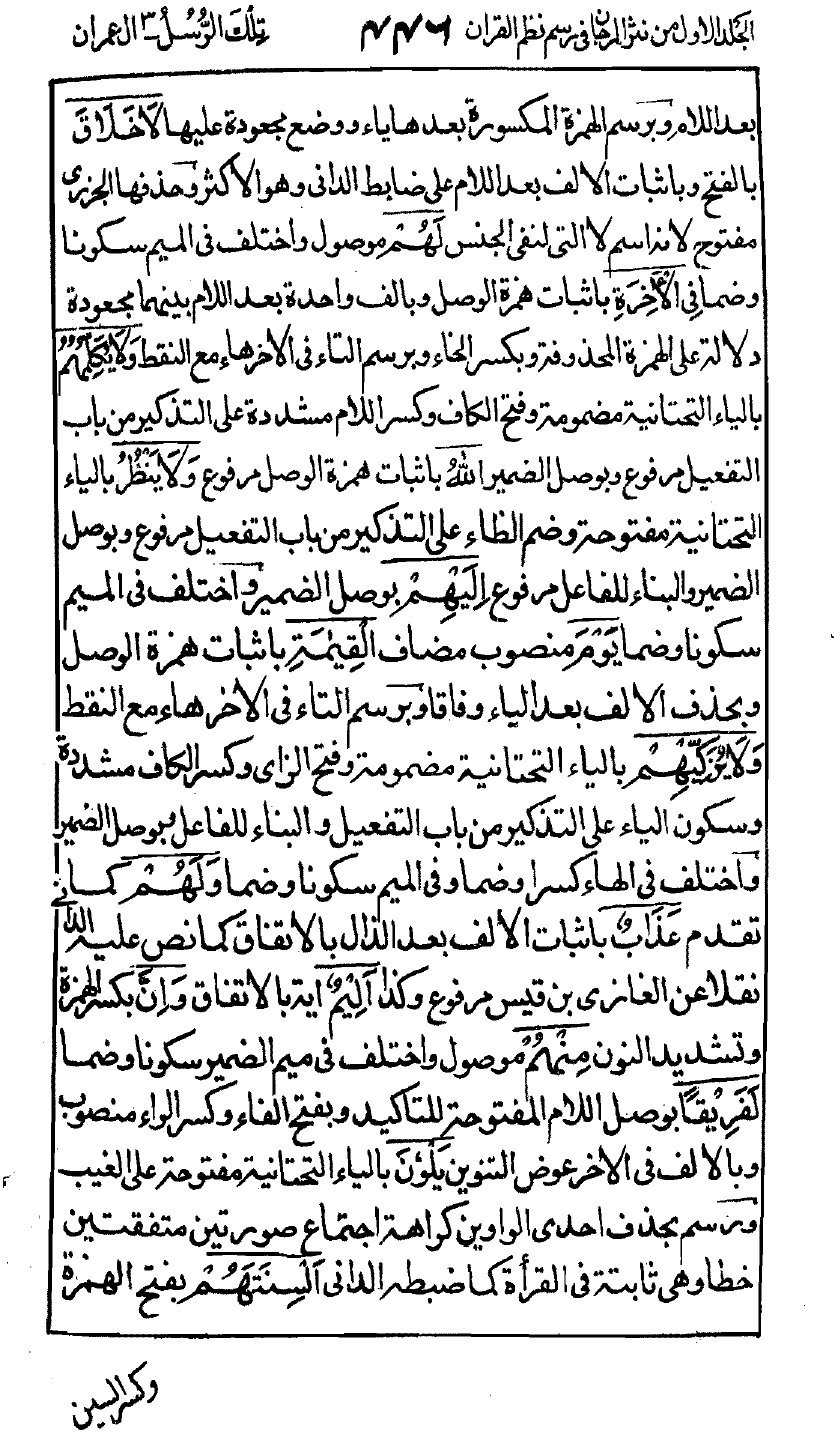 الجلد الاول من نثر المرجان في رسم نظم القران ٤٤٦ تِلْكَ الرُّسُلُ ٣ ال عمران
بعد اللام وبرسم الهمزة المكسورة بعدها ياء ووضع مجعودة عليها لَاخَلَاقَ
بالفتح وباثبات الالف بعد اللام على ضابط الدانى وهو الاكثر وحذفها الجزرى
مفتوح لانه اسم لا التى لنفى الجنس لَهُمْ موصول واختلف فى الميم سكونا
وضما فِى الْاٰخِرَةِ باثبات همزة الوصل وبالف واحدة بعد اللام بينهما مجعودة
دلالة على الهمزة المحذوفة وبكسر الخاء وبرسم التاء فى الاخر هاء مع النقط وَلَايُكَلِّمُهُمُ
بالياء التحتانية مضمومة وفتح الكاف وكسر اللام مشددة على التذكير من باب
التفعيل مرفوع وبوصل الضمير اللّٰهُ باثبات همزة الوصل مرفوع وَلَايَنْظُرُ بالياء
التحتانية مفتوحة وضم الظاء على التذكير من باب التفعيل مرفوع وبوصل
الضمير والبناء للفاعل مرفوع اِلَيْهِمْ بوصل الضمير واختلف فى الميم
سكونا وضما يَوْمَ منصوب مضاف الْقِيٰمَةِ باثبات همزة الوصل
وبحذف الالف بعد الياء وفاقا وبرسم التاء فى الاخر هاء مع النقط
وَلَايُزَكِّيْهِمْ بالياء التحتانية مضمومة وفتح الزاى وكسر الكاف مشددة
وسكون الياء على التذكير من باب التفعيل والبناء للفاعل وبوصل الضمير
واختلف فى الهاء كسرا وضما وفى الميم سكونا وضما وَلَهُمْ كما
تقدم عَذَابٌ باثبات الالف بعد الذال بالاتفاق كما نص عليه الدانى
نقلا عن الغازى بن قيس مرفوع وكذا اَلِيْمٌ اية بالاتفاق وَاِنَّ بكسر الهمزة
وتشديد النون مِنْهُمْ موصول واختلف فى ميم الضمير سكونا وضما
لَفَرِيْقًا بوصل اللام المفتوحة للتاكيد وبفتح الفاء وكسر الراء منصوب
وبالالف فى الاخر عوض التنوين يَلْوٗنَ بالياء التحتانية مفتوحة على الغيب
ورسم بحذف احدى الواوين كراهة اجتماع صورتين متفقتين
خطا وهى ثابتة فى القرأة كما ضبطه الدانى اَلْسِنَتَهُمْ بفتح الهمزة
وكسر السين